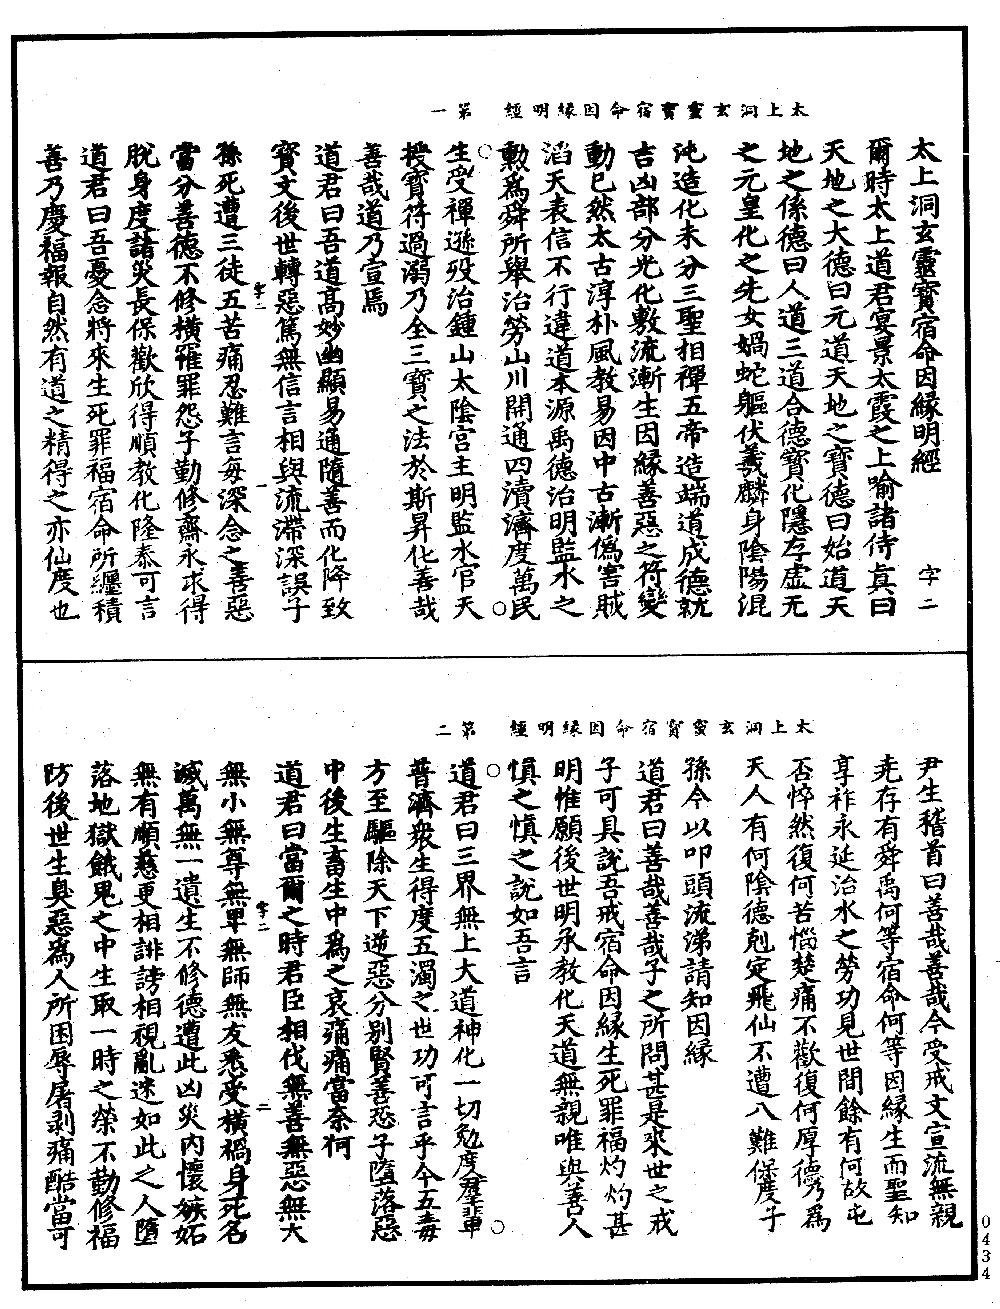 太上洞玄靈寶宿命因緣明經 第一
太上洞玄靈寶宿命因緣明經 字二
爾時太上道君宴景太霞之上喻諸侍真曰
天地之大德曰元道天地之寶德曰始道天
地之係德曰人道三道合德寶化隱存虛无
之元皇化之先女媧蛇軀伏羲麟身陰陽混
沌造化未分三聖相禪五帝造端道成德就
吉凶部分光化敷流漸生因緣善惡之符變
動已然太古淳朴風教易因中古漸偽害賊
滔天表信不行違道本源禹德治明監水之
勳為舜所舉治勞山川開通四瀆濟度萬民
生受禪遜歿治鍾山太陰宮主明監水官天
授寶符過溺乃全三寶之法於斯昇化善哉
善哉道乃宣焉
道君曰吾道高妙幽顯易通隨善而化降致
寶文後世轉惡篤無信言相與流滯深誤子
字二 一
孫死遭三徒五苦痛忍難言每深念之善惡
當分善德不修橫罹罪怨子勤修齋永求得
脫身度諸災長保歡欣得順教化隆泰可言
道君曰吾憂念將來生死罪福宿命所纏積
善乃慶福報自然有道之精得之亦仙度也
太上洞玄靈寶宿命因緣明經 第二
尹生稽首曰善哉善哉今受戒文宣流無親
堯存有舜禹何等宿命何等因緣生而聖知
享祚永延治水之勞功見世間餘有何故屯
否悴然復何苦惱楚痛不歡復何厚德乃為
天人有何陰德剋定飛仙不遭八難保度子
孫今以叩頭流涕請知因緣
道君曰善哉善哉子之所問甚是來世之戒
子可具說吾戒宿命因緣生死罪福灼灼甚
明惟願後世明承教化天道無親唯與善人
慎之慎之說如吾言
道君曰三界無上大道神化一切勉度群輩
普濟眾生得度五濁之世功可言乎今五毒
方至驅除天下逆惡分別賢善恐子墮落惡
中後生畜生中為之哀痛痛當奈何
道君曰當爾之時君臣相伐無善無惡無大
字二 二
無小無尊無卑無師無友悉受橫禍身死名
滅萬無一遺生不修德遭此凶災內懷嫉妬
無有順慈更相誹謗相視亂迷如此之人墮
落地獄餓鬼之中生取一時之榮不勤修福
防後世生臭惡為人所困辱屠剥痛酷當可
0434